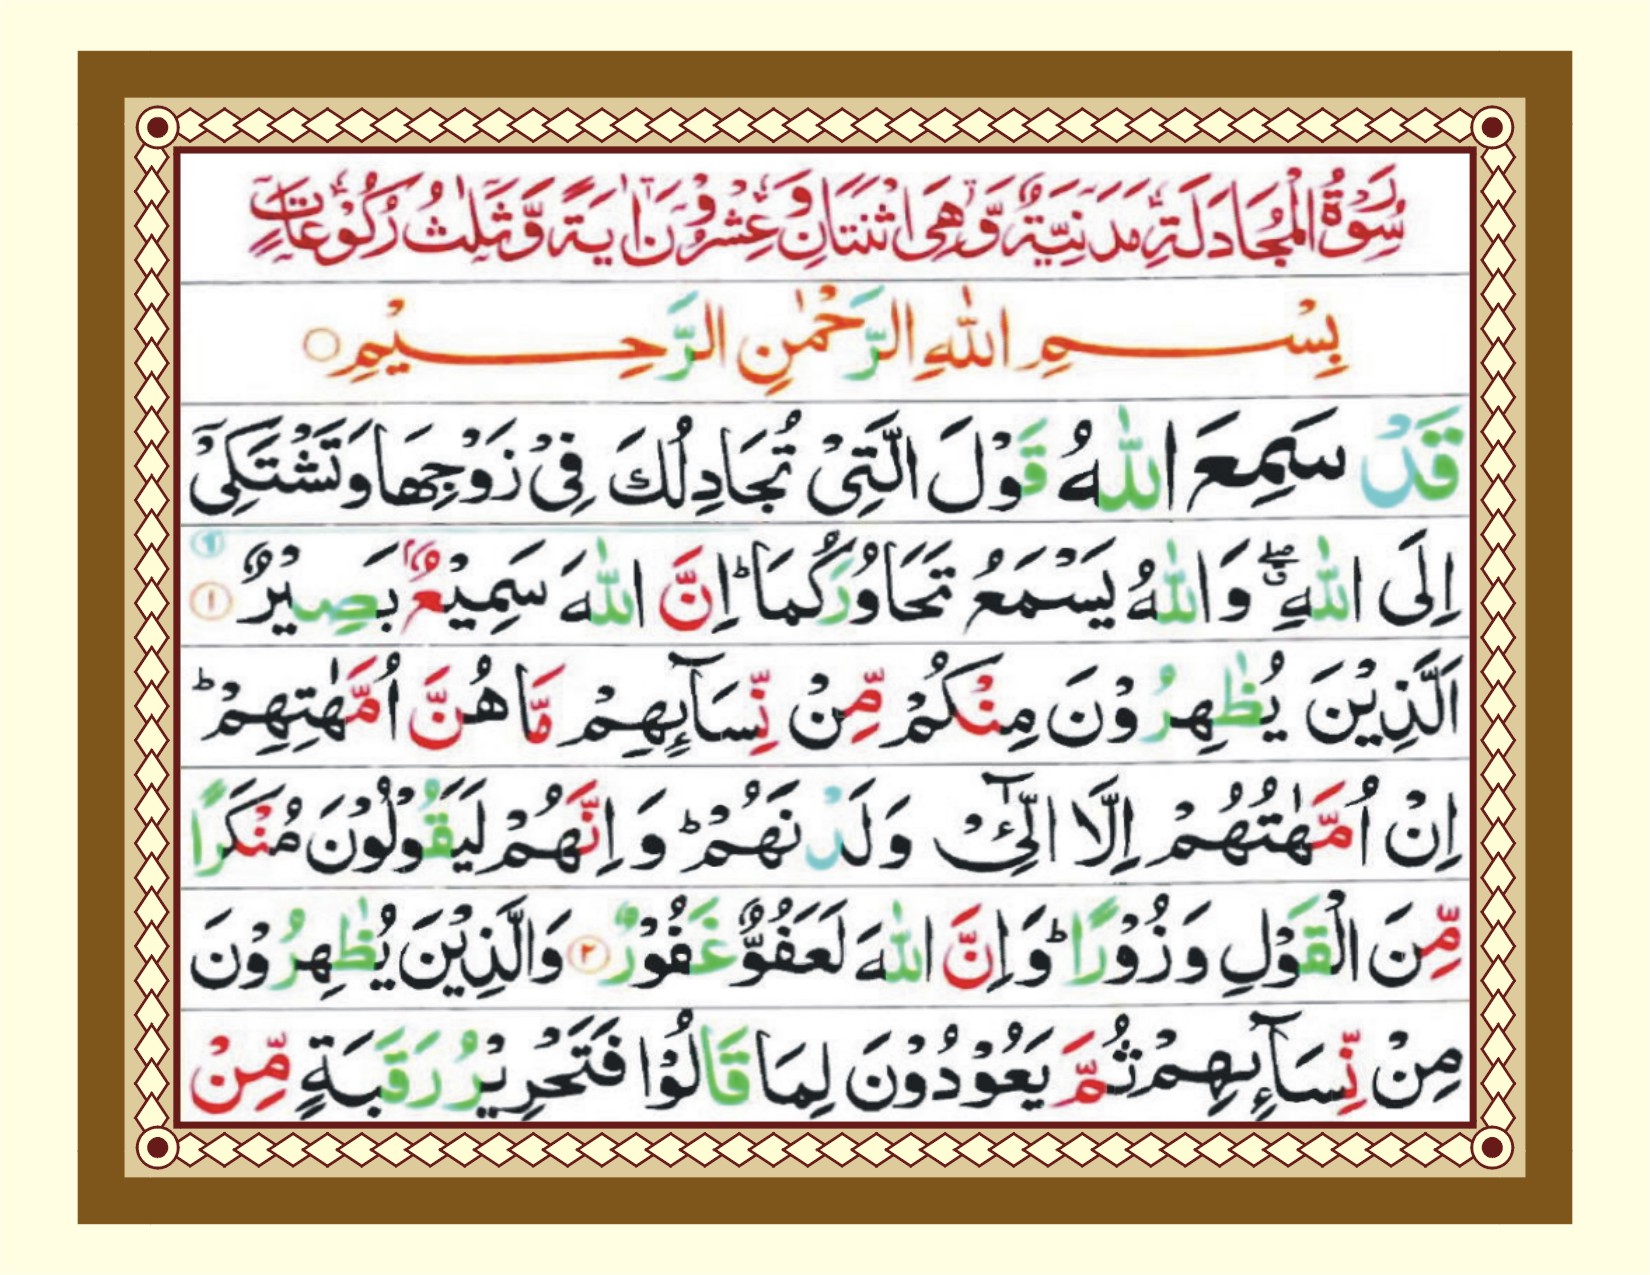 سُوْرَةُ الْمُجَادَلَةِ مَدَنِيَّةٌ وَّهِىَ اثْنَتَانِ وَعِشْرُوْنَ اٰيَةً وَّثَلٰثُ رُكُوْعَاتٍ
بِسْمِ اللّٰهِ الرَّحْمٰنِ الرَّحِيْمِ ○
قَدْ سَمِعَ اللّٰهُ قَوْلَ الَّتِىْ تُجَادِلُكَ فِىْ زَوْجِهَا وَتَشْتَكِىْٓ
اِلَى اللّٰهِ ۖۗ وَاللّٰهُ يَسْمَعُ تَحَاوُرَكُمَا ؕ اِنَّ اللّٰهَ سَمِيْعٌۢ بَصِيْرٌ ۱
اَلَّذِيْنَ يُظٰهِرُوْنَ مِنْكُمْ مِّنْ نِّسَآٮِٕهِمْ مَّا هُنَّ اُمَّهٰتِهِمْ ؕ
اِنْ اُمَّهٰتُهُمْ اِلَّا الّٰٓـئِْ وَلَدْنَهُمْ ؕ وَاِنَّهُمْ لَيَقُوْلُوْنَ مُنْكَرًا
مِّنَ الْقَوْلِ وَزُوْرًا ؕ وَاِنَّ اللّٰهَ لَعَفُوٌّ غَفُوْرٌ ۲ وَالَّذِيْنَ يُظٰهِرُوْنَ
مِنْ نِّسَآٮِٕهِمْ ثُمَّ يَعُوْدُوْنَ لِمَا قَالُوْا فَتَحْرِيْرُ رَقَبَةٍ مِّنْ